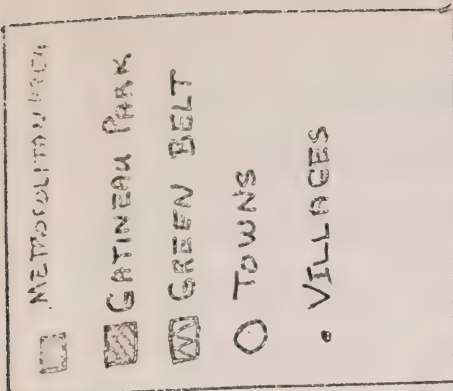 METROPOLITAN AREA
GATINEAU PARK
GREEN BELT
TOWNS
VILLAGES